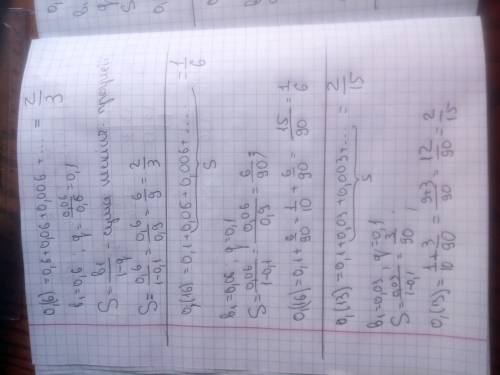 0,(6) = 0,6+0,06+0,006+... = 2/3
b₁=0,6 ; q = 0,06/0,6 = 0,1
S = b₁/1-q - сума
S = 0,6/1-0,1 = 0,6/0,9 = 6/9 = 2/3
0,1(6) = 0,1+0,06+0,006+...... = 1/6
S
b₁=0,06 ; q=0,1
S = 0,06/1-0,1 = 0,06/0,9 = 6/90 ;
0,1(6) = 0,1 + 6/90 = 1/10 + 6/90 = 15/90 = 1/6
0,1(3) = 0,1+0,03+0,003+... = 2/15
S
b₁=0,03 ; q=0,1
S = 0,03/1-0,1 = 3/90 ;
0,1(3) = 1/10 + 3/90 = 9+3/90 = 12/90 = 2/15